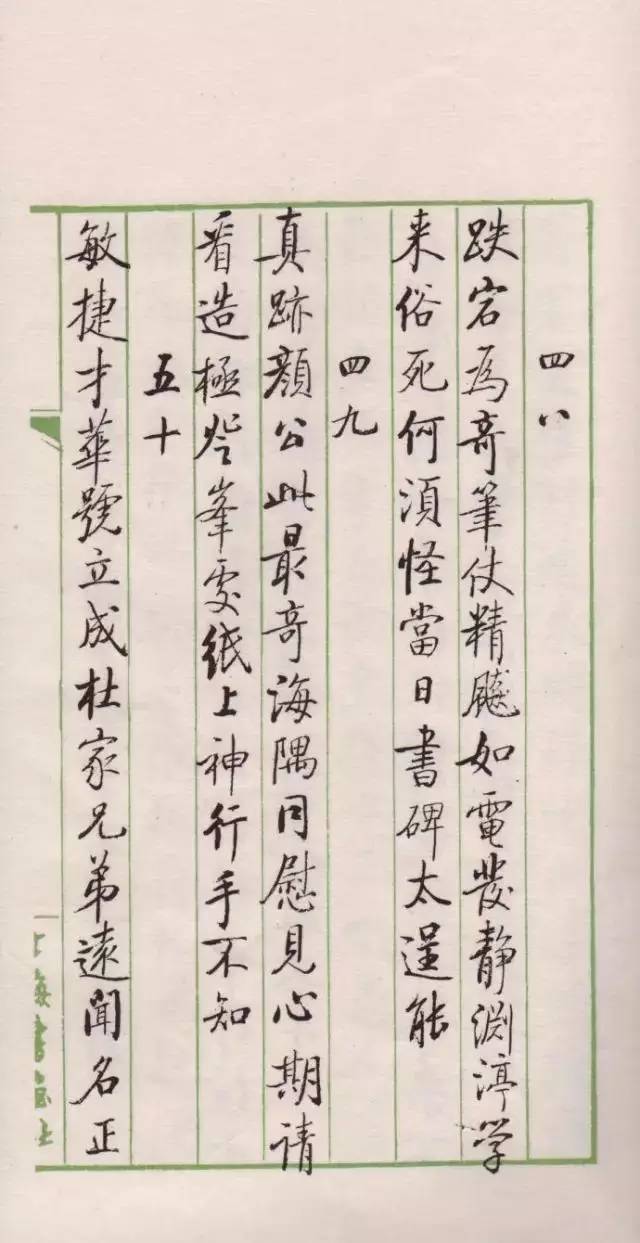 四八
跌宕為奇筆仗精飈如電發静渊渟学
来俗死何須怪當日書碑太逞能
四九
真跡顔公此最奇海隅同慰見心期请
看造極登峯處纸上神行手不知
五十
敏捷才華號立成杜家兄弟遠聞名正
上海書畫社